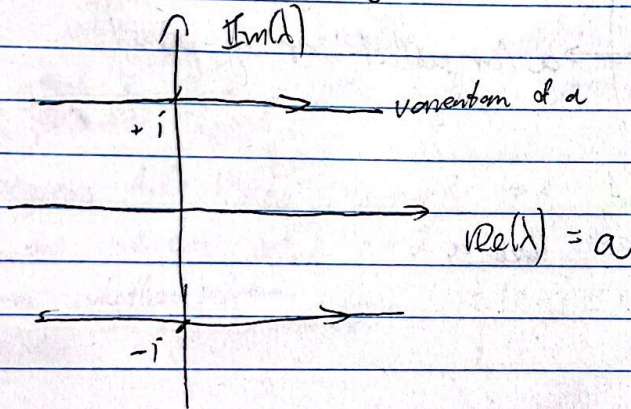 Im(λ)
variation of a
+i
Re(λ) = a
-i